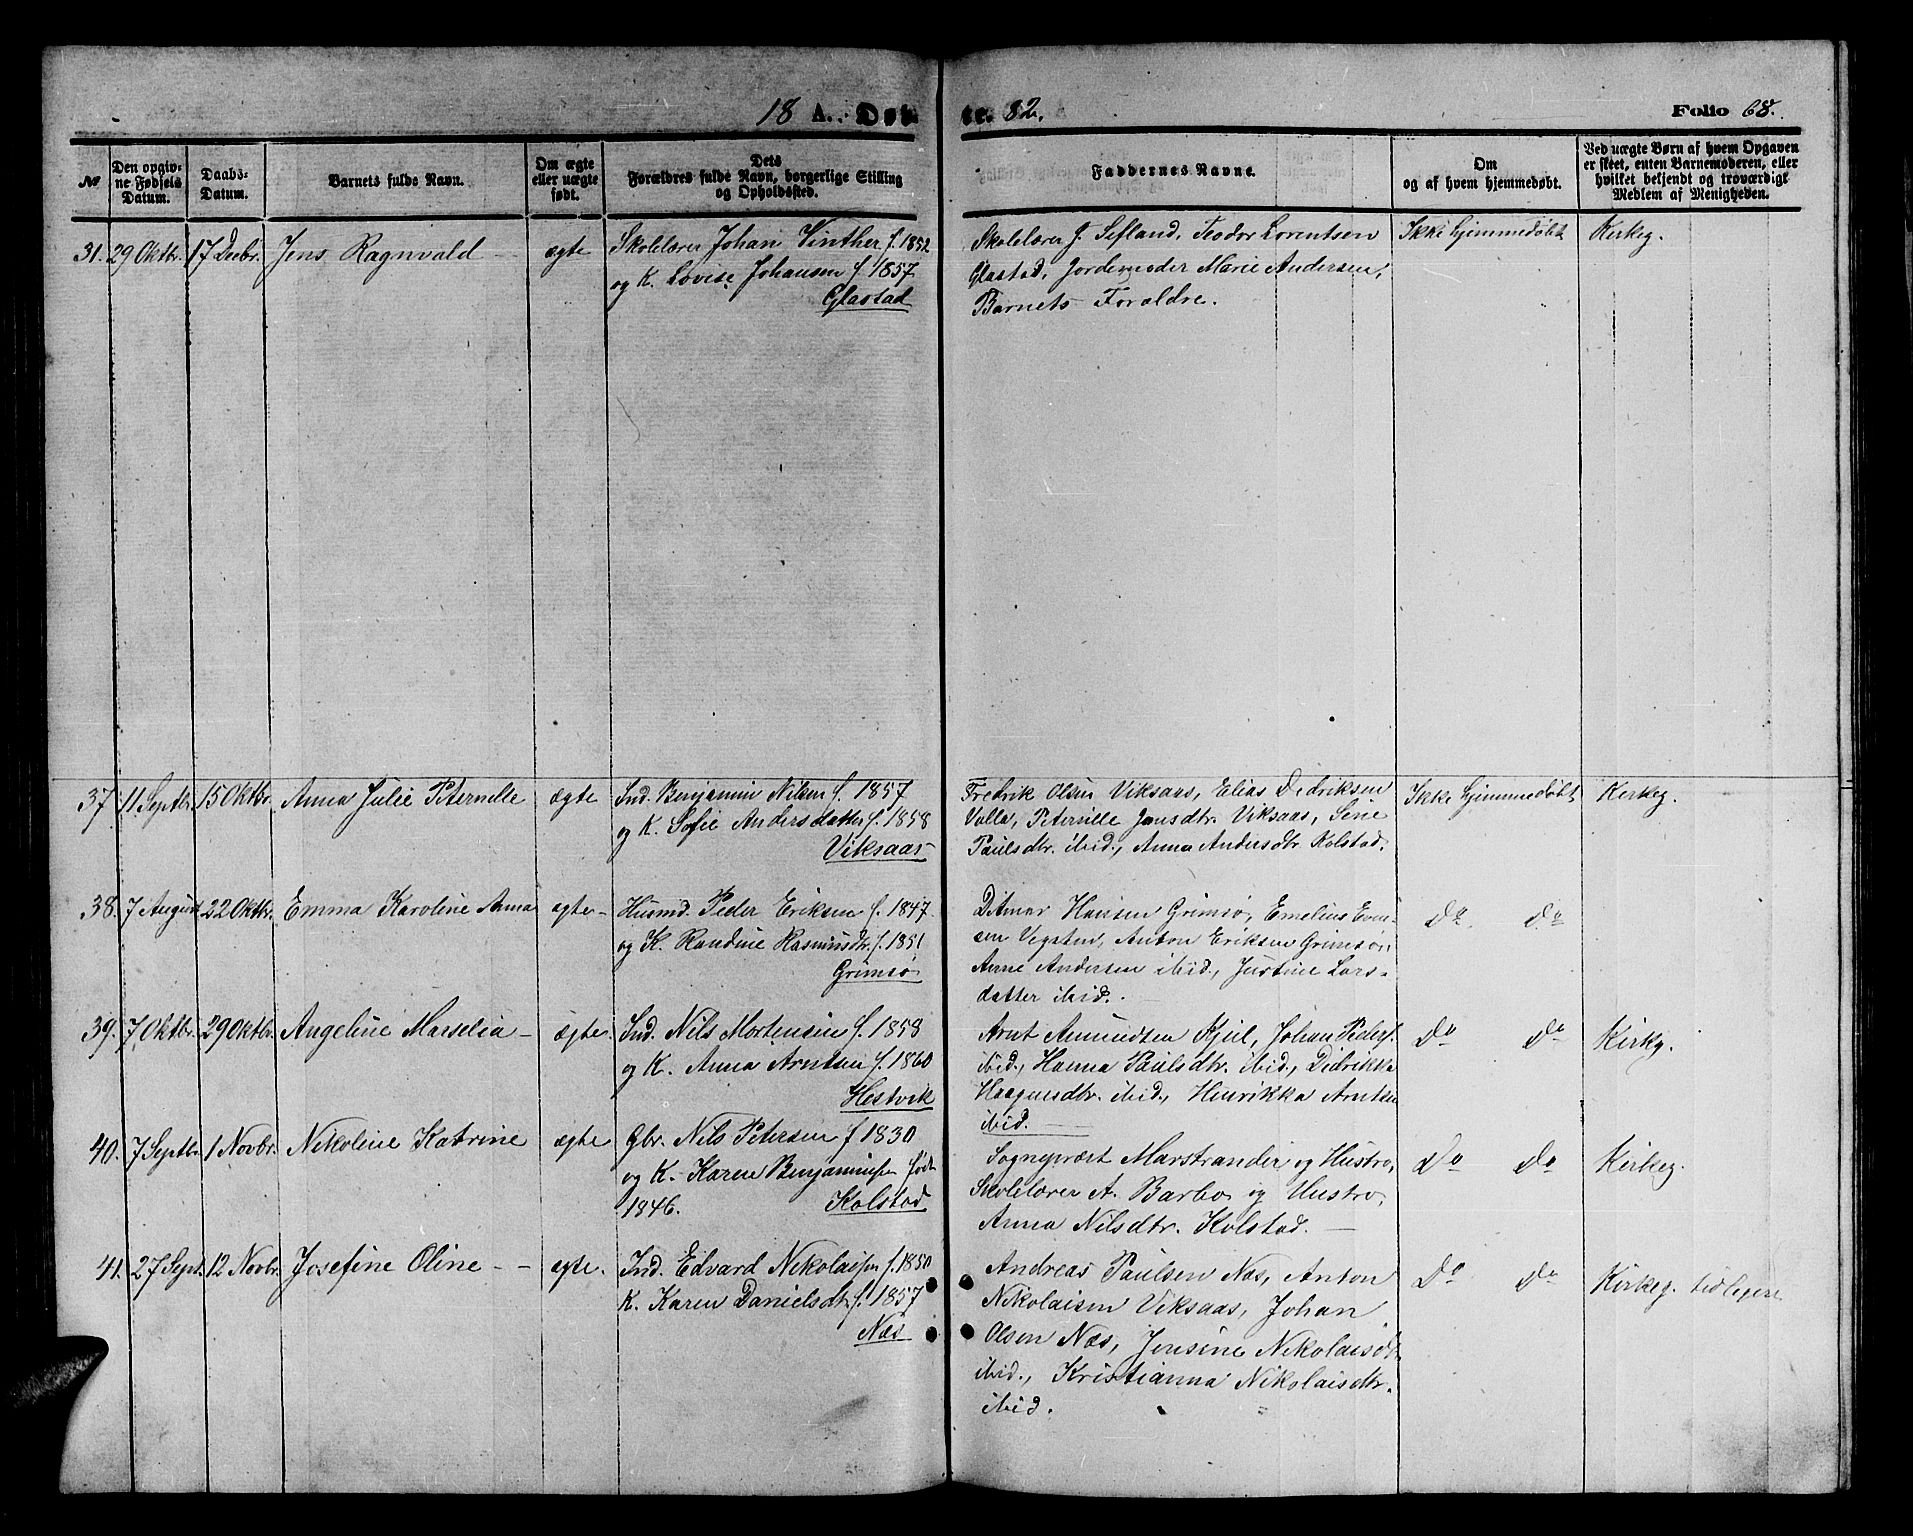 18 A. Døb
te. 82.
Folio 68.
№
Den opgiv-
ne Fødsels
Datum.
Daabs-
Datum.
Barnets fulde Navn.
Om ægte
eller uægte
født.
Dets
Forældres fulde Navn, borgerlige Stilling
og Opholdssted.
Faddernes Navne.
Om
og af hvem hjemmedøbt.
Ved uægte Børn af hvem Opgaven
er skeet, enten Barnemoderen, eller
hvilket bekjendt og troværdigt
Medlem af Menigheden.
31. 29 Oktbr. 17 Decbr. Jens Ragnvald - ægte
Skolelærer Johan Vinther f. 1852
og K. Lovise Johansen f. 1857
Glastad
Skolelærer J. Sefland, Teodor Lorentsen
Glastad, Jordemoder Marie Andersen,
Barnets Forældre.
Ikke hjemmedøbt Kirkeg.
37. 11 Septbr. 15 Oktbr. Anna Julie Peternelle ægte
Ind. Benjamin Nilsen f. 1857
og K. Sofie Andersdatter f. 1858
Viksaas
Fredrik Olsen Viksaas, Elias Didriksen
Valla, Peternille Jensdtr. Viksaas, Sine
Paulsdtr. ibid., Anna Andersdtr. Kolstad.
Ikke hjemmedøbt Kirkeg.
38. 7 August 22 Oktbr. Emma Karoline Anna ægte -
Husmd. Peder Eriksen f. 1847
og K. Randine Rasmusdtr. f. 1851
Grimsø
Ditmar Hansen Grimsø, Emelius Even-
sen Vegsten, Anton Eriksen Grimsø,
Anne Andersen ibid., Justine Lars-
datter ibid.
Do Do
39. 7 Oktbr. 29 Oktbr. Angeline Marselia - ægte.
Ind. Nils Mortensen f. 1858
og K. Anna Arntsen f. 1860
Hestvik
Arnt Amundsen Kjul, Johan Peders.
ibid., Hanna Paulsdtr. ibid., Didrikka
Haagensdtr. ibid., Hinrikka Arntsen
ibid.
Do Do Kirkg.
40. 7 Septbr. 1 Novbr. Nikoline Katrine ægte
Gbr. Nils Petersen f 1830
og K. Karen Benjaminsen født
1846. Kolstad
Sogneprest Marstrander og Hustro,
Skolelærer A. Barbo og Hustro,
Anna Nilsdtr. Kolstad. -
Do Do Kirkeg.
41. 27 Sept. 12 Novbr. Josefine Oline - - ægte.
Ind. Edvard Nikolaisen f. 1850
K. Karen Danielsdtr. f. 1857
Næs
Andreas Paulsen Næs, Anton
Nikolaisen Viksaas, Johan
Olsen Næs, Jensine Nikolaisdtr.
ibid., Kristianna Nikolaisdtr.
ibid.
Do Do Kirkeg. tidligere